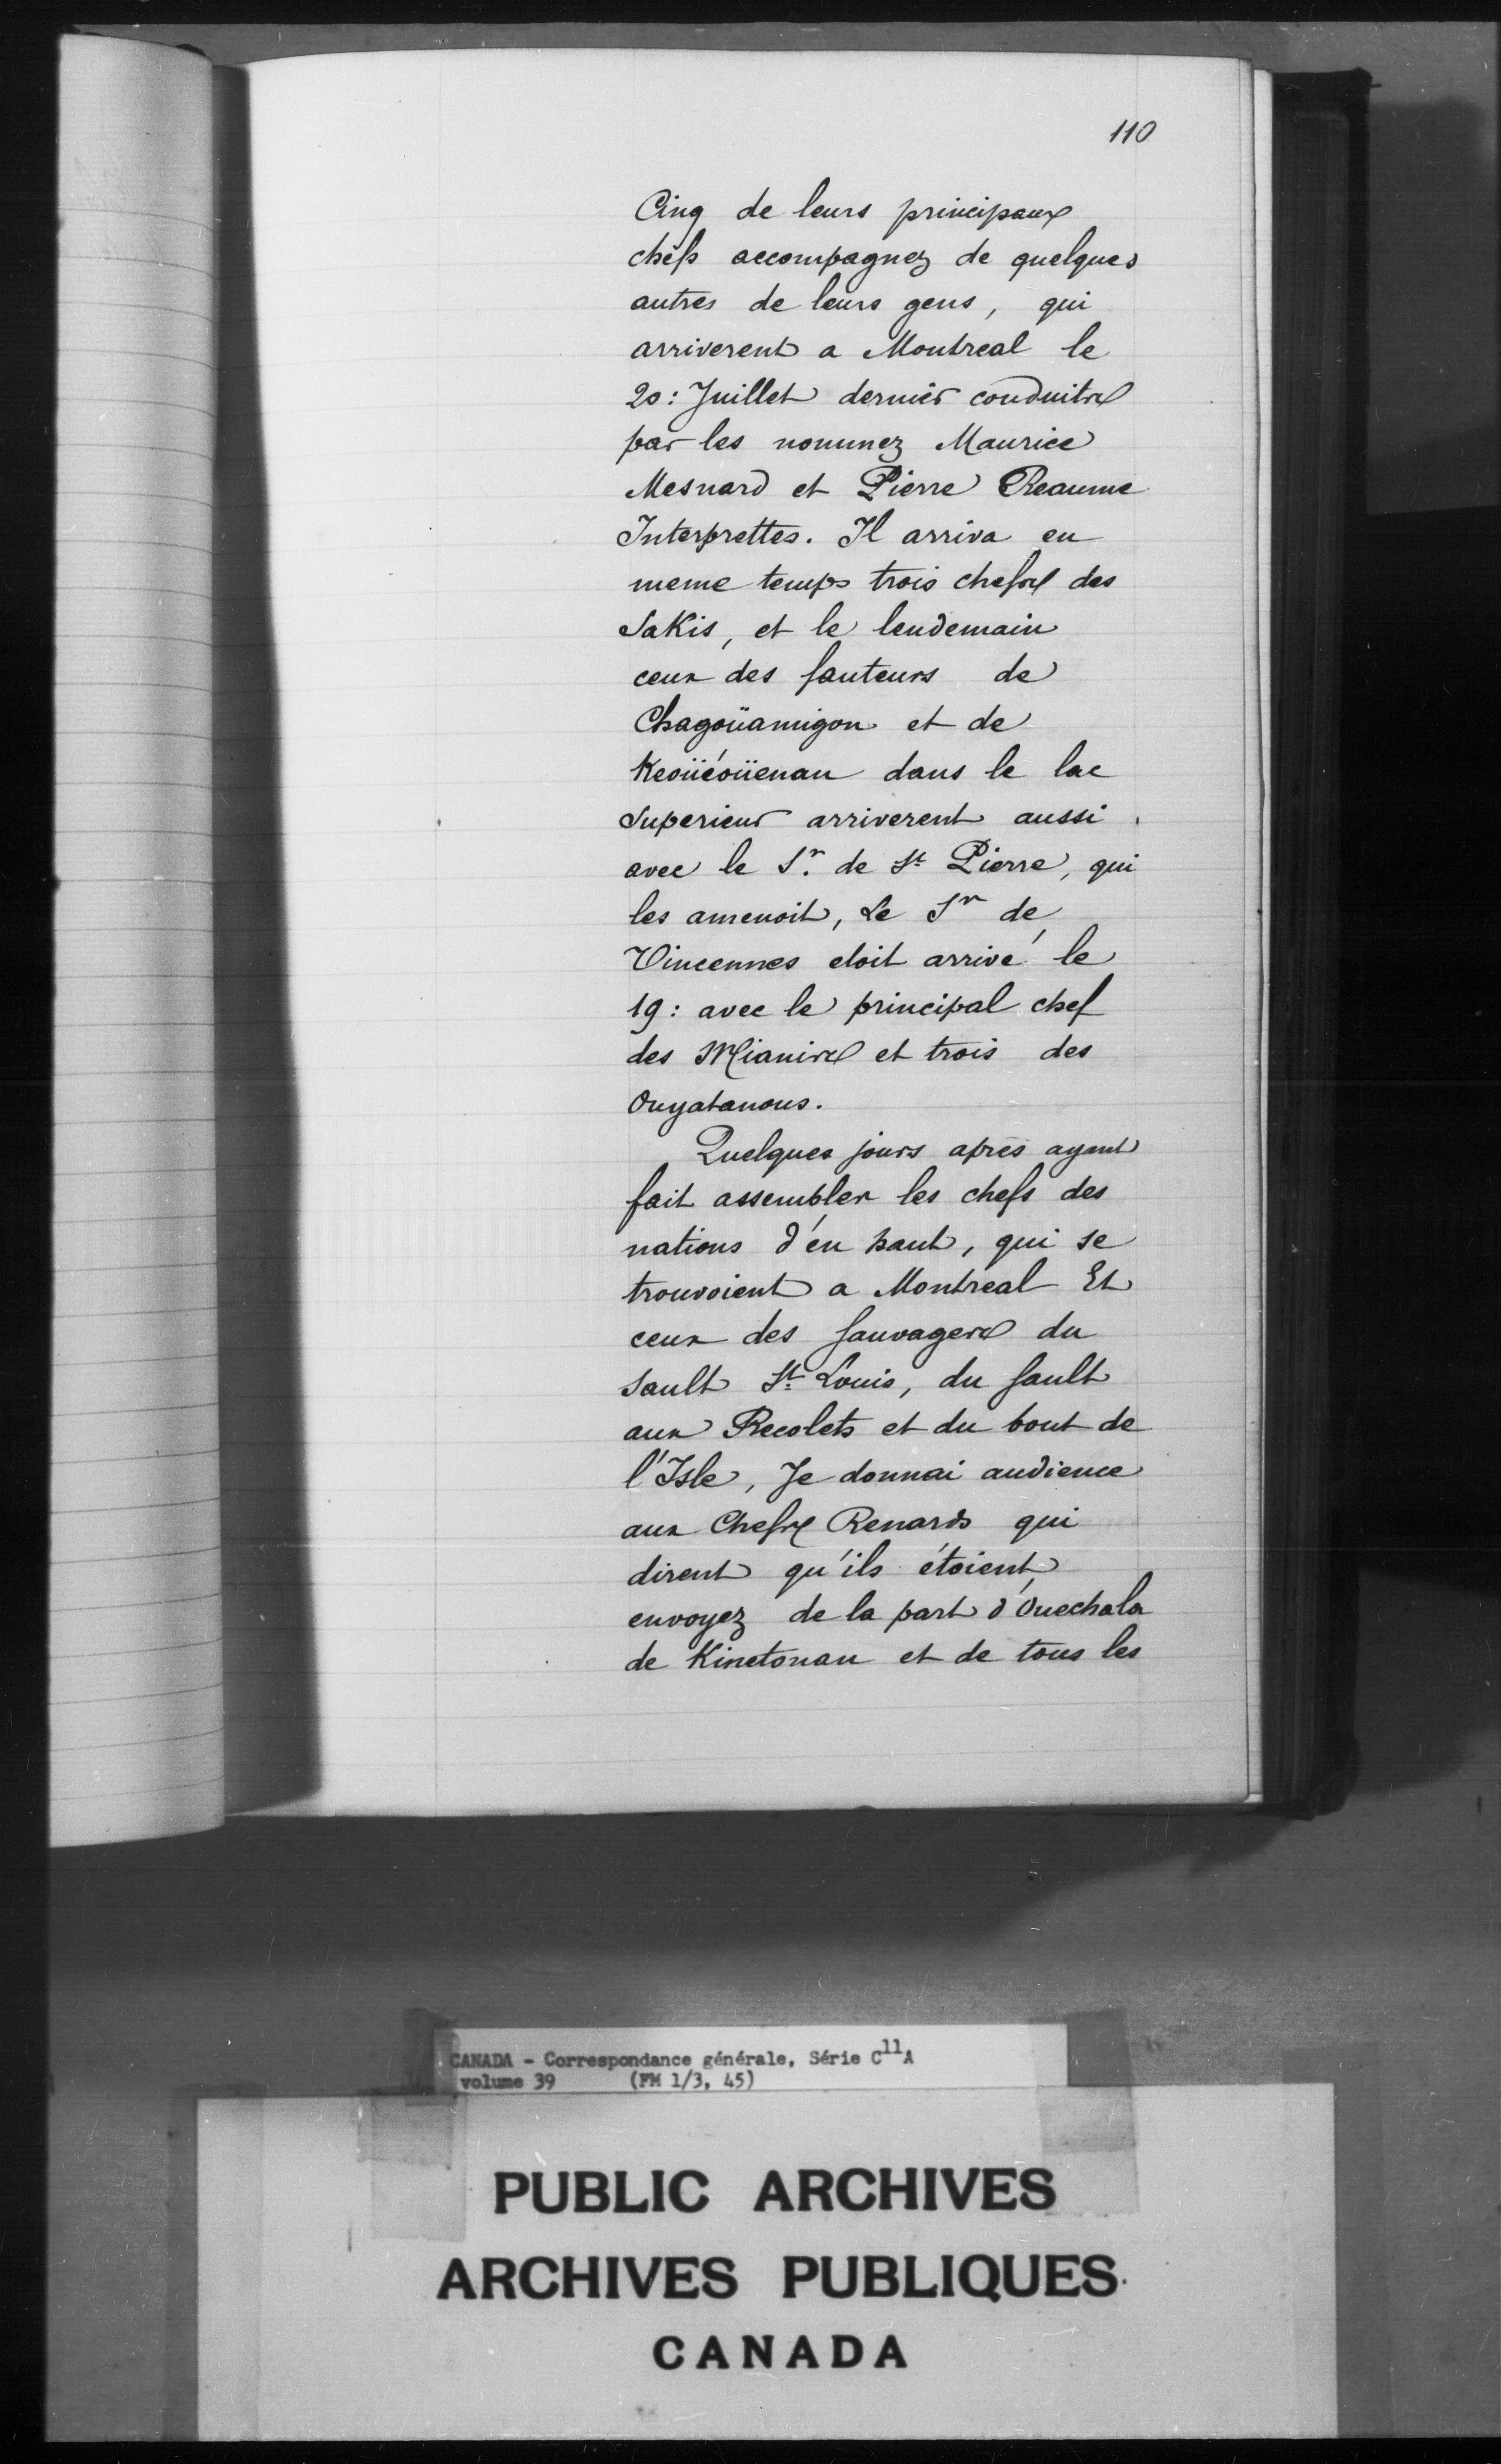 110
Cinq de leurs principaux
chefs accompagnez de quelques
autres de leurs gens, qui
arriverent a Montreal le
20: Juillet dernier conduits
par les nommez Maurice
Mesnard et Pierre Reaume
Interprettes. Il arriva en
meme temps trois chefs des
Sakis, et le lendemain
ceux des sauteurs de
Chagoüamigon et de
Keoüéoüenan dans le lac
Superieur arriverent aussi
avec le Sr. de St Pierre, qui
les amenoit, Le Sr de
Vincennes etoit arrivé le
19: avec le principal chef
des Miamis et trois des
Ouyatanous.
Quelques jours après ayant
fait assembler les chefs des
nations d'en haut, qui se
trouvoient a Montreal Et
ceux des sauvages du
Sault St Louis, du sault
aux Recolets et du bout de
l'Isle, Je donnai audience
aux Chefs Renards qui
dirent qu'ils étoient
envoyez de la part d'Ouechala
de Kinetonan et de tous les
CANADA - Correspondance générale, Série C11A
volume 39 (FM 1/3, 45)
PUBLIC ARCHIVES
ARCHIVES PUBLIQUES
CANADA